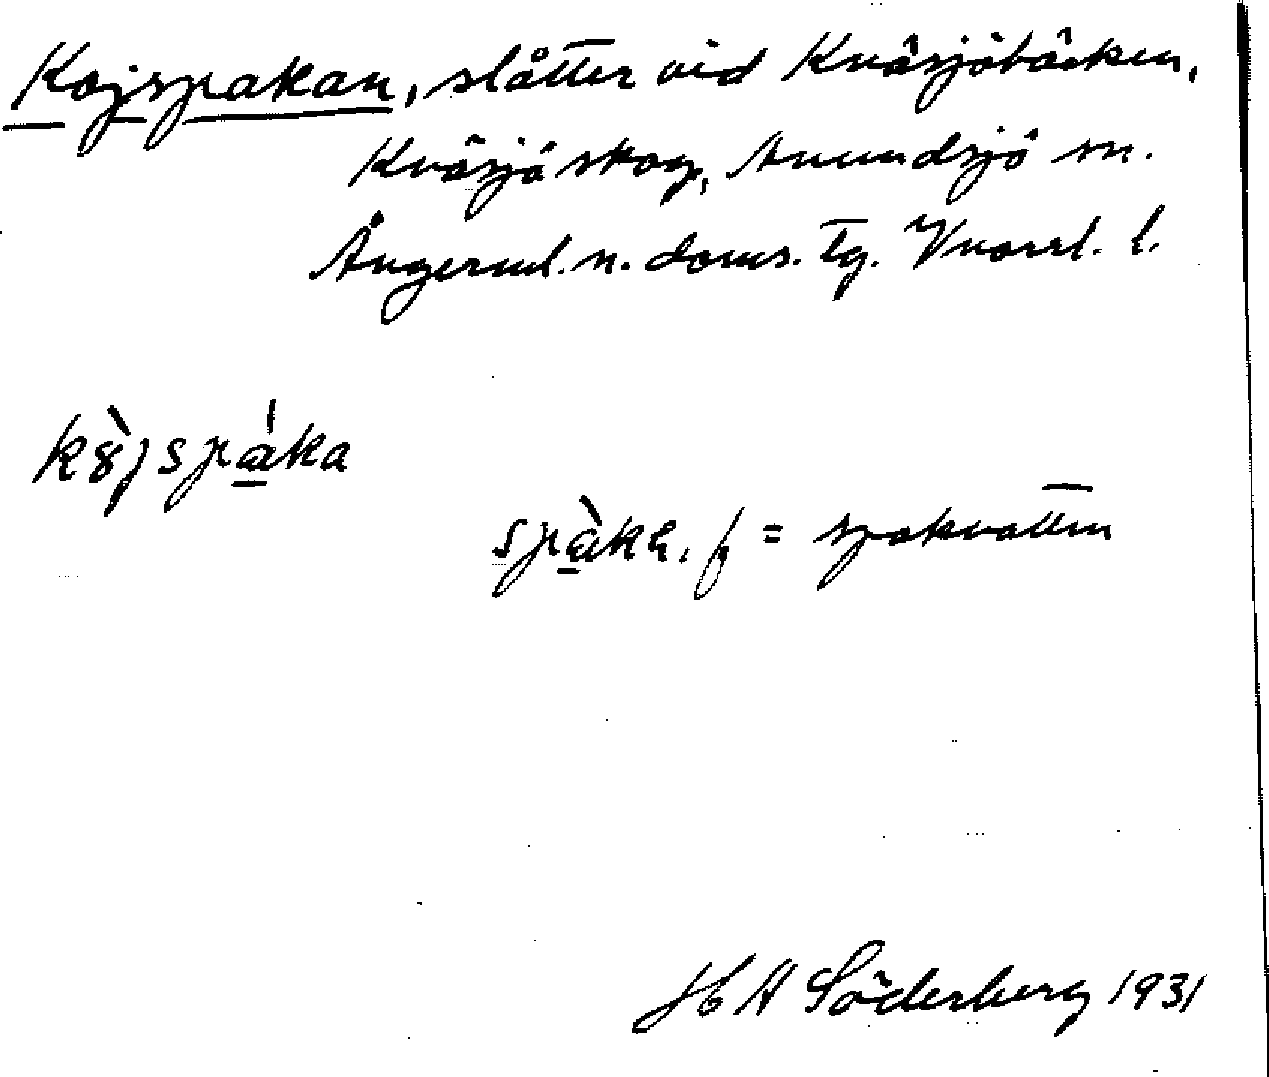 Kojspakan, slåtter vid Kväsjöbäcken,
Kväsjö skog, Anundsjö sn.
Ångerml. n. doms. tg. Vnorrl. l.
spàka. f = spakvatten
H A Söderberg 1931